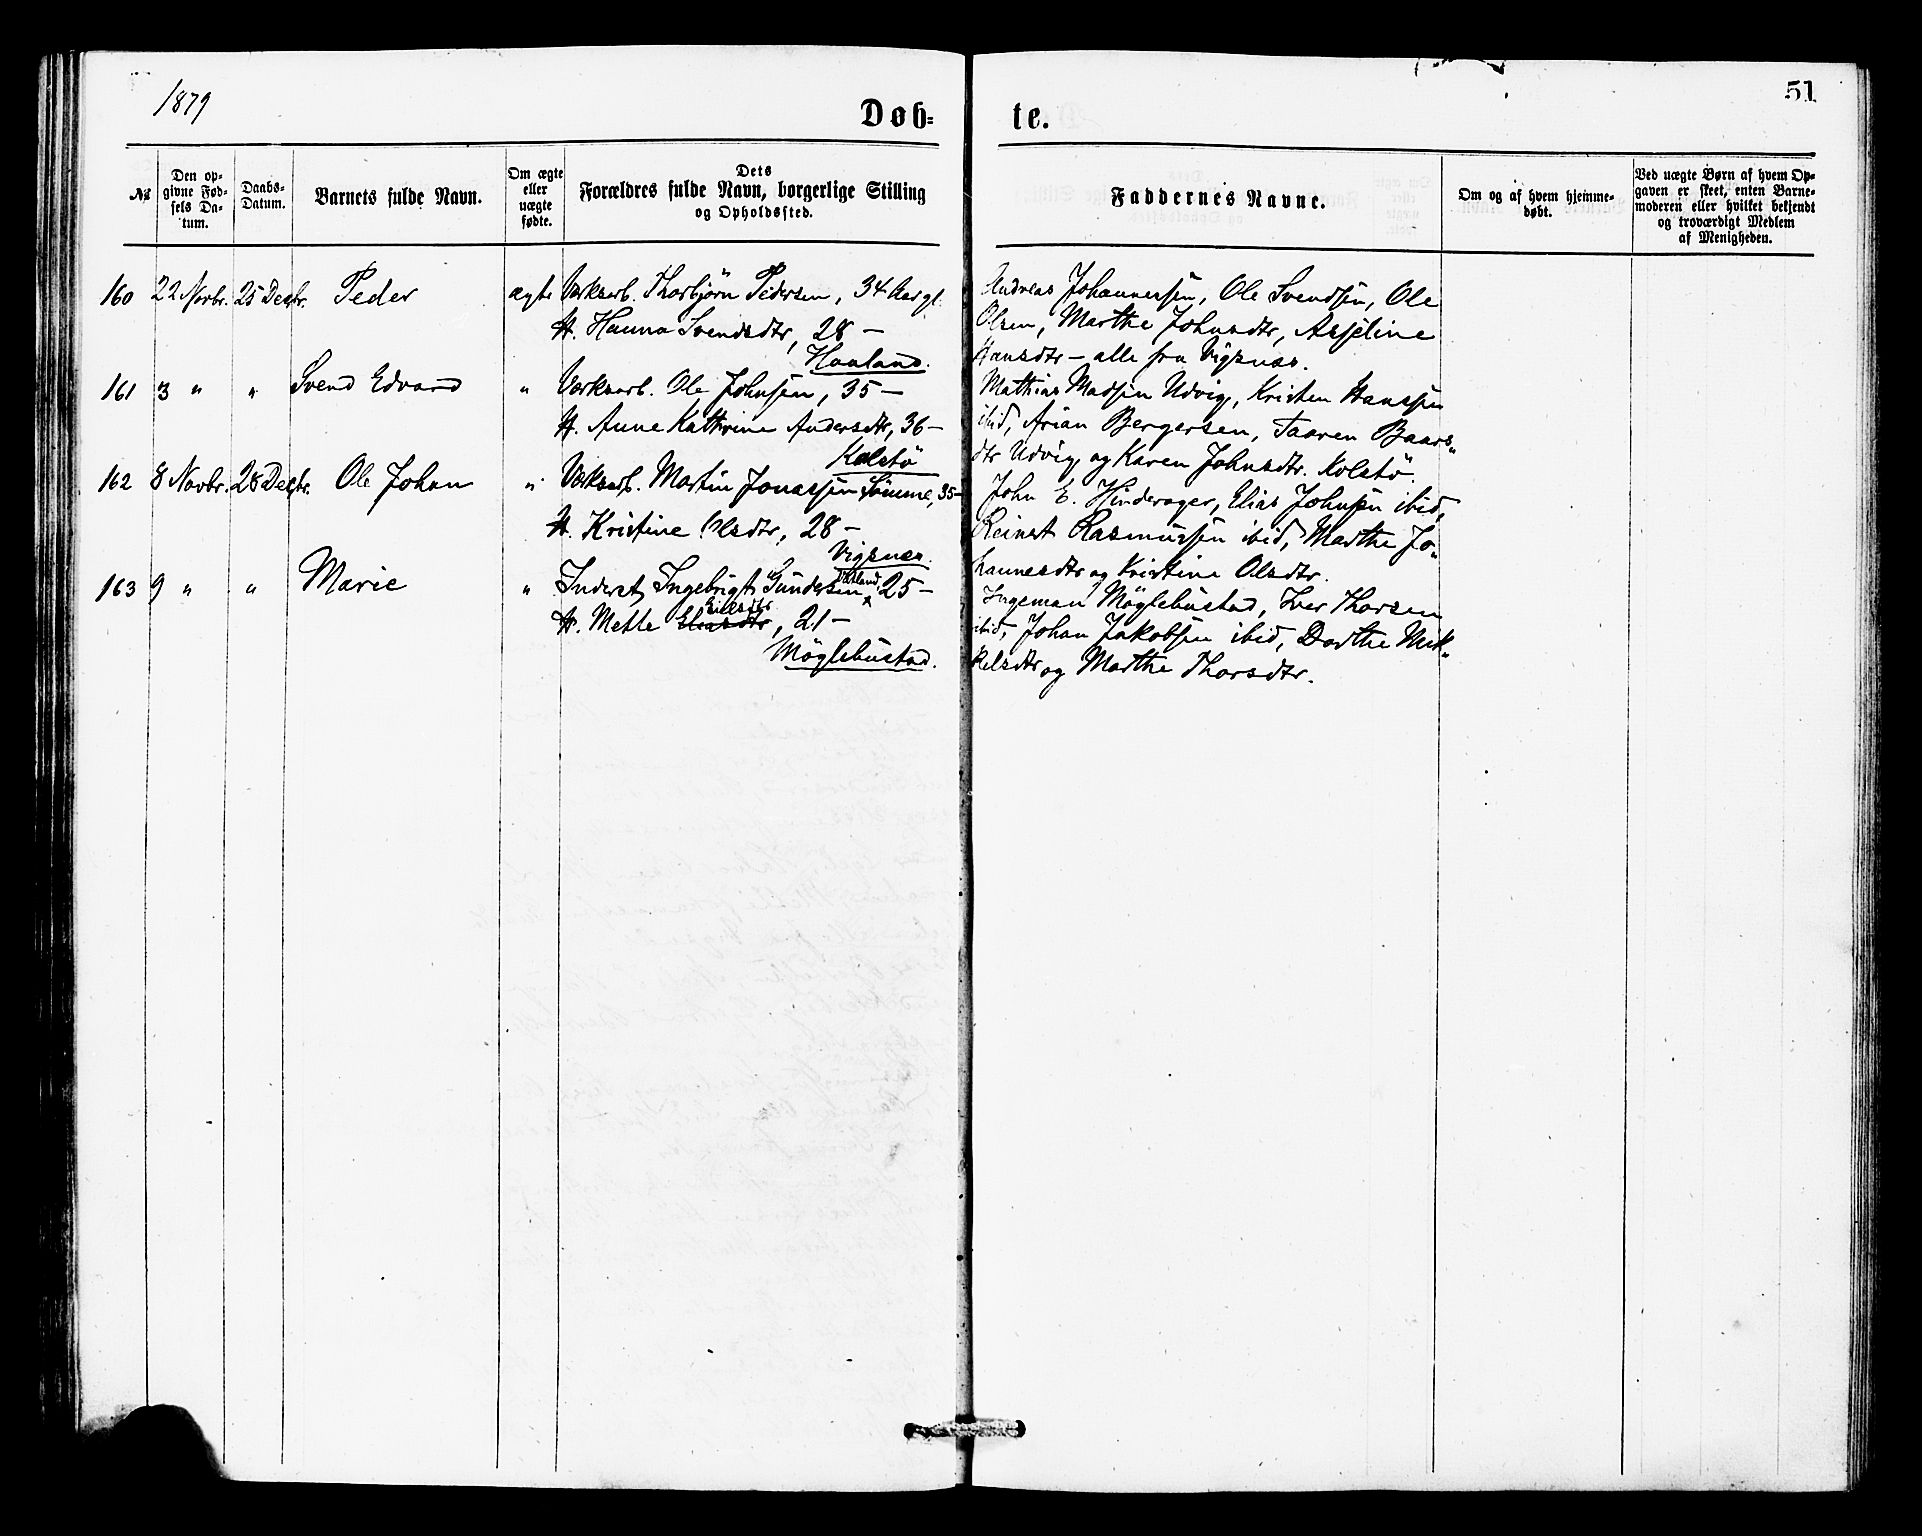 1879
51
Døb-
te.
№
Den op-
givne Fød-
sels Da-
tum.
Daabs-
Datum.
Barnets fulde Navn.
Om ægte
eller
uægte
fødte.
Dets
Forældres fulde Navn, borgerlige Stilling
og Opholdssted.
Faddernes Navne.
Om og af hvem hjemme-
døbt.
Ved uægte Børn af hvem Op-
gaven er skeet, enten Barne-
moderen eller hvilket bekjendt
og troværdigt Medlem
af Menigheden.
160 22 Novbr. 25 Decbr. Peder ægte Værksarb. Thorbjörn Pedersen, 34 Aar gl.
H. Hanna Svendsdtr, 28 —
Haaland.
Andreas Johannessen, Ole Svendsen, Ole
Olsen, Marthe Johnsdtr, Asseline
Hansdtr — alle fra Vigsnæs.
161 3 " " Svend Edvard " Værksarb. Ole Johnsen, 35 —
H. Anne Kathrine Andersdtr, 36 —
Kolstö
Mathias Madsen Udvig, Kristen Hanssen
ibid, Arian Bergersen, Taaren Baars-
dtr Udvig og Karen Johnsdtr. Kolstö.
162 8 Novbr. 28 Decbr. Ole Johan " Værksarb. Martin Jonassen Sömme, 35 —
H. Kristine Olsdtr, 28 —
Vigsnæs.
John E. Hinderager, Elias Johnsen ibid,
Reinert Rasmussen ibid, Marthe Jo-
hannesdtr og Kristine Olsdtr.
163 9 " " Marie " Inderst Ingebrigt Gundersen 25 —
H. Mette Eliasdtr, 21 —
Möglebustad.
Ingeman Möglebustad, Iver Thorsen
ibid, Johan Jakobsen ibid, Dorthe Mik-
kelsdtr og Marthe Thorsdtr.